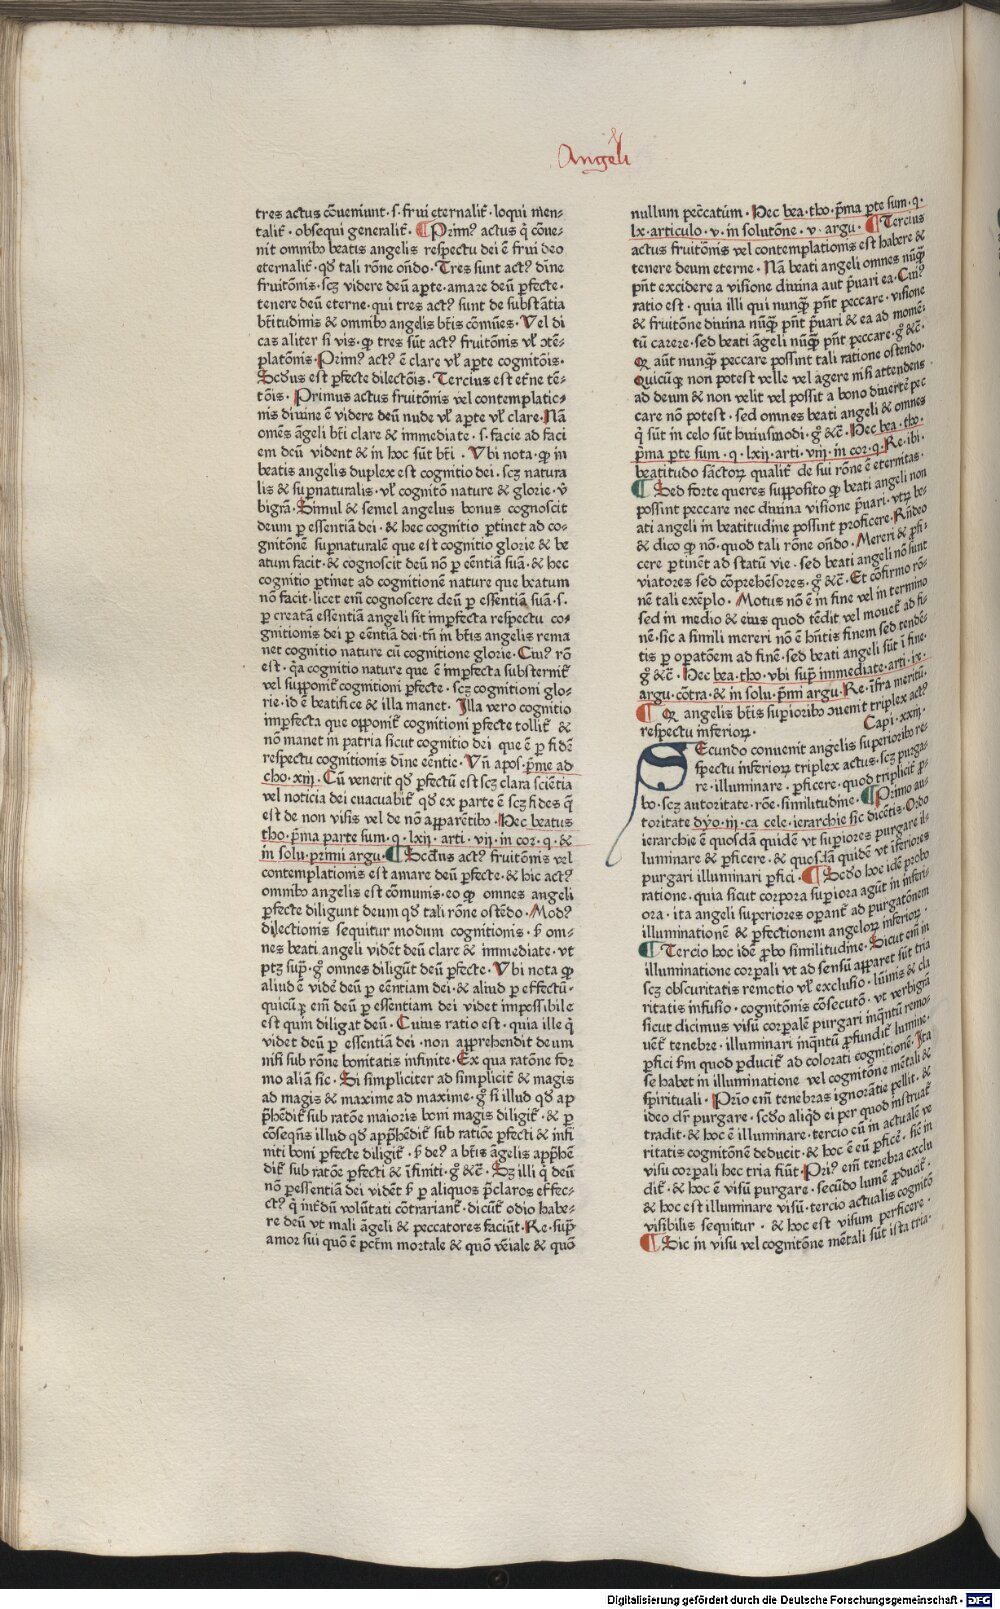 Angeli
tres actus cōueniunt · s · frui eternalit̄ · loqui men-
talit̄ · obsequi generalit̄ · ¶ Primꝰ actus q̄ cōue-
nit omnibꝫ beatis angelis respectu dei ē frui deo
eternalit̄ · qd̄ tali rōne on̄do · Tres sunt actꝰ dīne
fruitōnis · scꝫ videre deū aꝑte · amare deū ꝑfecte ·
tenere deū eterne · qui tres actꝰ sunt de substātia
bt̄itudinis & omnibꝫ angelis bt̄is cōmūes · Vel di
cas aliter si vis · ꝙ tres sūt actꝰ fruitōnis vl̄ ↄtē-
platōnis · Primꝰ actꝰ ē clare vl̄ aꝑte cognitōis ·
Scd̄us est ꝑfecte dilectōis · Tercius est et̄ne tē-
tōis · Primus actus fruitōnis vel contemplatio-
nis diuine ē videre deū nude vl̄ aꝑte vl̄ clare · Nā
om̄es āgeli bt̄i clare & immediate · s · facie ad faci
em deū vident & in hoc sūt bt̄i · Vbi nota · ꝙ in
beatis angelis duplex est cognitio dei · scꝫ natura
lis & suꝑnaturalis · vl̄ cognitō nature & glorie · v̄
bigrā · Simul & semel angelus bonus cognoscit
deum ꝑ essentiā dei · & hec cognitio ꝑtinet ad co-
gnitōnē suꝑnaturalē que est cognitio glorie & be
atum facit · & cognoscit deū nō ꝑ cēntiā suā · & hec
cognitio ꝑtinet ad cognitionē nature que beatum
nō facit · licet em̄ cognoscere deū ꝑ essentiā suā · s ·
ꝑ creatā essentiā angeli sit imꝑfecta respectu co-
gnitionis dei ꝑ eēntiā dei · tn̄ in bt̄is angelis rema
net cognitio nature cū cognitione glorie · Cuiꝰ rō
est · q̄a cognitio nature que ē imꝑfecta substernit̄
vel supponit̄ cognitioni ꝑfecte · scꝫ cognitioni glo-
rie · id ē beatifice & illa manet · Illa vero cognitio
imꝑfecta que opponit̄ cognitioni ꝑfecte tollit̄ &
nō manet in patria sicut cognitio dei que ē ꝑ fidē
respectu cognitionis dine eēntie · Vn̄ apos · p̄me ad
cho · xiij · Cū venerit qd̄ ꝑfectū est scꝫ clara sciētia
vel noticia dei euacuabit̄ qd̄ ex parte ē scꝫ fides q̄
est de non visis vel de nō apparētibꝫ · Hec beatus
tho · p̄ma parte sum · q · lxij · arti · vij · in cor · q · &
in solu · primi argu · ¶ Scd̄us actꝰ fruitōnis vel
contemplationis est amare deū ꝑfecte · & hic actꝰ
omnibꝫ angelis est cōmunis · eo ꝙ omnes angeli
ꝑfecte diligunt deum qd̄ tali rōne ostēdo · Modꝰ
dilectionis sequitur modum cognitionis · s̄ om-
nes beati angeli vidēt deū clare & immediate · vt
ptꝫ supͣ · gͦ omnes diligūt deū ꝑfecte · Vbi nota ꝙ
aliud ē vidē deū ꝑ eēntiam dei · & aliud ꝑ effectū ·
quicūꝙ em̄ deū ꝑ essentiam dei videt impossibile
est quin diligat deū · Cuius ratio est · quia ille q̄
videt deū ꝑ essentiā dei · non apprehendit deum
nisi sub rōne bonitatis infinite · Ex qua ratōne for
mo aliā sic · Si simpliciter ad simplicit̄ & magis
ad magis & maxime ad maxime · gͦ si illud qd̄ ap
p̄hēdit̄ sub ratōe maioris boni magis diligit̄ · & ꝑ
cōseqn̄s illud qd̄ app̄hēdit̄ sub ratiōe ꝑfecti & infi
niti boni ꝑfecte diligit̄ · s̄ deꝰ a bt̄is āgelis app̄hē
dit̄ sub ratōe ꝑfecti & īfiniti · gͦ &c̄ · Sꝫ illi q̄ deū
nō ꝑ essentiā dei vidēt s̄ ꝑ aliquos p̄claros effec-
ctꝰ q̄ int̄dū volūtati cōtrariant̄ · dicūt̄ odio habe-
re deū vt mali āgeli & peccatores faciūt · Re · supͣ
amor sui quō ē pctm̄ mortale & quō vēiale & quō
nullum peccatum · Hec bea · tho · p̄ma ꝑte sum · q ·
lx · articulo · v · in solutōne · v · argu · ¶ Tercius
actus fruitōnis vel contemplationis est habere &
tenere deum eterne · Nā beati angeli omnes nūq̄
pn̄t excidere a visione diuina aut p̄uari ea · Cuiꝰ
ratio est · quia illi qui nunq̄ pn̄t peccare · visione
& fruitōne diuina nūq̄ pn̄t p̄uari & ea ad momē-
tū carere · sed beati āgeli nūq̄ pn̄t peccare · gͦ &c̄ ·
Ꝙ aūt nunq̄ peccare possint tali ratione ostendo ·
Quicūqꝫ non potest velle vel agere nisi attendens
ad deum & non velit vel possit a bono diuertē pec
care nō potest · sed omnes beati angeli & omnes
q̄ sūt in celo sūt huiusmodi · gͦ &c̄ · Hec bea · tho ·
p̄ma ꝑte sum · q · lxij · arti · viij · in cor · q · Re · ibi ·
beatitudo sāctoꝝ qualit̄ de sui rōne ē eternitas ·
¶ Sed forte queres supposito ꝙ beati angeli non
possint peccare nec diuina visione p̄uari · vtꝝ be-
ati angeli in beatitudine possint proficere · Rn̄deo
& dico ꝙ nō · quod tali rōne on̄do · Mereri & ꝓfi-
cere ꝑtinēt ad statū vie · sed beati angeli nō sunt
viatores sed cōprehēsores · gͦ &c̄ · Et cōfirmo rō-
nē tali exēplo · Motus nō ē in fine vel in termino
sed in medio & eius quod tēdit vel mouet̄ ad fi-
nē · sic a simili mereri nō ē hn̄tis finem sed tendē-
tis ꝑ oꝑatōem ad finē · sed beati angeli sūt ī fine ·
gͦ &c̄ · Hec bea · tho · vbi supͣ immediate · arti · ix ·
argu · cōtra · & in solu · p̄mi argu · Re · īfra meritū ·
¶ Ꝙ angelis bt̄is superioribꝫ ↄuenit triplex actꝰ
respectu inferioꝝ · Capi · xxiij ·
SEcundo conuenit angelis superioribꝫ re-
spectu inferioꝝ triplex actus · scꝫ purga-
re · illuminare · ꝑficere · quod triplicit̄ ꝓ-
bo · scꝫ autoritate · rōe · similitudine · ¶ Primo au-
toritate dyo · iij · ca cele · ierarchie sic dicētis · Ordo
ierarchie ē quosdā quidē vt suꝑiores purgare il-
luminare & ꝑficere · & quosdā quidē vt īferiores
purgari illuminari ꝑfici · ¶ Scd̄o hoc idē probo
ratione · quia sicut corpora suꝑiora agūt in inferi-
ora · ita angeli suꝑiores oꝑant̄ ad purgatōnem
illuminationē & ꝑfectionem angeloꝝ inferioꝝ ·
¶ Tercio hoc idē ꝓbo similitudine · Sicut em̄ in
illuminatione corꝑali vt ad sensū apparet sūt tria
scꝫ obscuritatis remotio vl̄ exclusio · lūinis & cla
ritatis infusio · cognitōnis cōsecutō · vt verbigrā
sicut dicimus visū corꝑalē purgari inqͣntū remo-
uēt̄ tenebre · illuminari inqͣntū ꝓfundit̄ lumine ·
ꝑfici s̄m quod ꝑducit̄ ad colorati cognitionē · Ita
se habet in illuminatione vel cognitōne mētali &
spirituali · Prio em̄ tenebras ignorātie pellit · &
ideo dr̄ purgare · scd̄o aliqd̄ ei ꝑ quod instruat̄
tradit · & hoc ē illuminare · tercio eū in actualē ve
ritatis cognitōnē deducit · & hoc ē eū ꝑficē · sic̄ in
visu corꝑali hec tria fiūt · Priꝰ em̄ tenebra exclu
dit̄ · & hoc ē visū purgare · secūdo lumē ꝓducit̄ ·
& hoc est illuminare visū · tercio actualis cognitō
visibilis sequitur · & hoc est visum perficere ·
¶ Sic in visu vel cognitōne mētali sūt ista tria ·
Digitalisierung gefördert durch die Deutsche Forschungsgemeinschaft - DFG